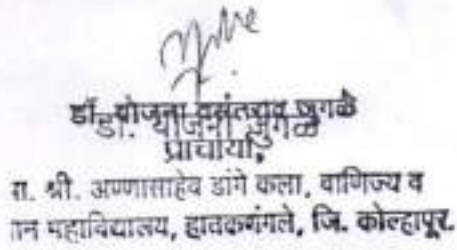 डॉ. योजना वसंतराव जुगळे
डॉ. योजना जुगळे
प्राचार्या,
रा. श्री. अण्णासाहेब डांगे कला, वाणिज्य व
ान महाविद्यालय, हातकणंगले, जि. कोल्हापूर.